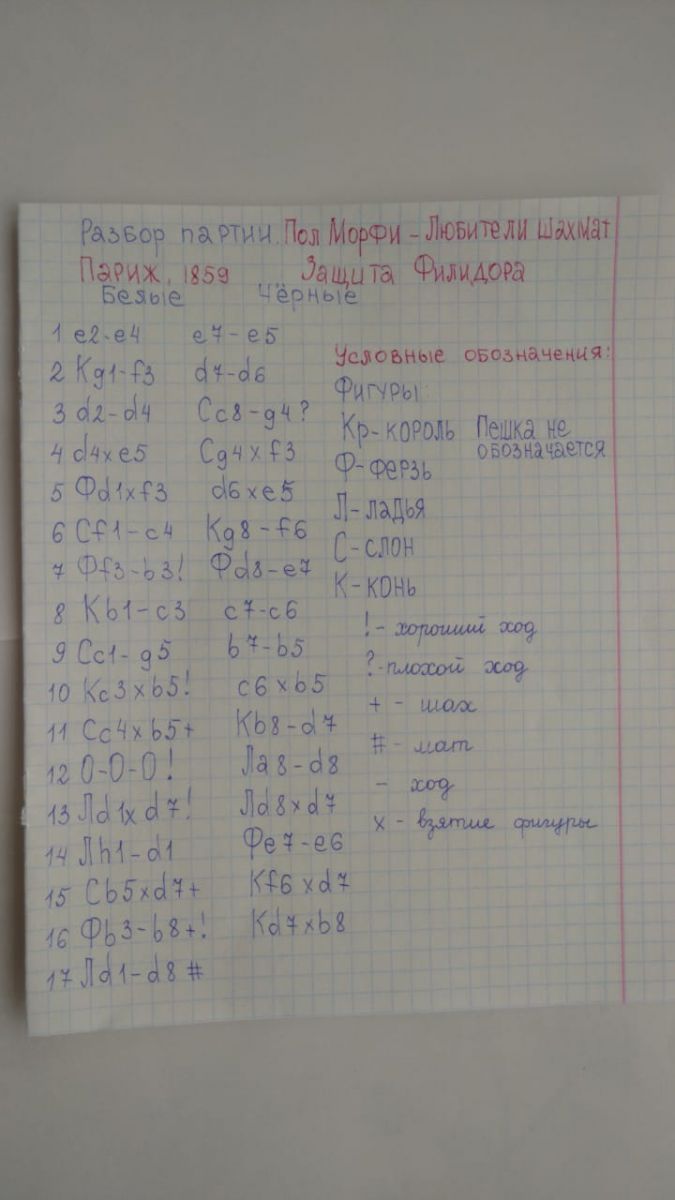 Разбор партии. Пол Морфи - Любители шахмат
Париж, 1859 Защита Филидора
Белые Чёрные
1 e2-e4 e7-e5
2 Kg1-f3 d7-d6
3 d2-d4 Cc8-g4?
4 d4xe5 Cg4xf3
5 Фd1xf3 d6xe5
6 Cf1-c4 Kg8-f6
7 Фf3-b3! Фd8-e7
8 Kb1-c3 c7-c6
9 Cc1-g5 b7-b5
10 Kc3xb5! c6xb5
11 Cc4xb5+ Kb8-d7
12 0-0-0! Лa8-d8
13 Лd1xd7! Лd8xd7
14 Лh1-d1 Фe7-e6
15 Cb5xd7+ Kf6xd7
16 Фb3-b8+! Kd7xb8
17 Лd1-d8#
Условные обозначения:
Фигуры:
Кр-король
Ф-ферзь
Л-ладья
С-слон
К-конь
Пешка не
обозначается
! - хороший ход
? - плохой ход
+ - шах
# - мат
- ход
x - взятие фигуры